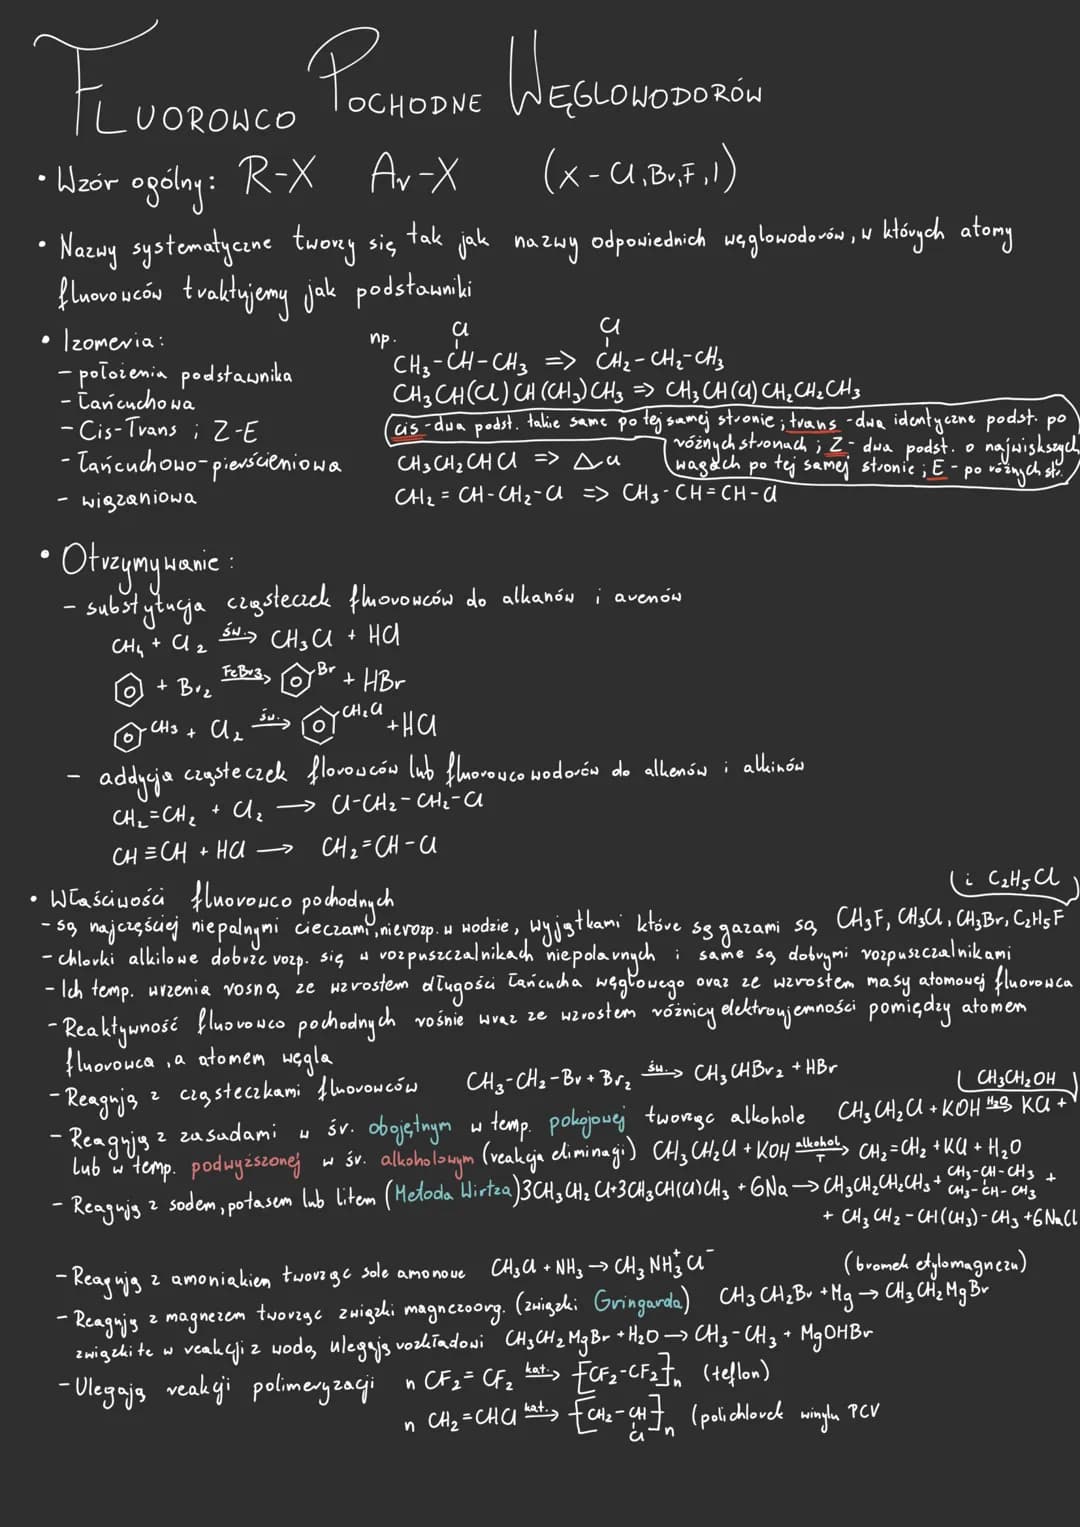 FLUOROWCO POCHODNE WĘGLOWODORÓW
• Wzór ogólny: R-X Ar-X (x - Cl, Br, F, I)
• Nazwy systematyczne tworzy się tak jak nazwy odpowiednich węglowodorów, w których atomy
fluorowców traktujemy jak podstawniki
• Izomeria:
- położenia podstawnika
- łańcuchowa
- Cis-Trans ; Z-E
- łańcuchowo-pierścieniowa
- wiązaniowa
np.
Cl Cl
CH₃-CH-CH₃ => CH₂-CH₂-CH₃
CH₃CH(Cl)CH(CH₃)CH₃ => CH₃CH(Cl)CH₂CH₂CH₃
cis - dwa podst. takie same po tej samej stronie ; trans - dwa identyczne podst. po
różnych stronach ; Z - dwa podst. o największych
wagach po tej samej stronie ; E - po różnych str.
CH₃CH₂CHCl => △Cl
CH₂=CH-CH₂-Cl => CH₃-CH=CH-Cl
• Otrzymywanie:
- substytucja cząsteczek fluorowców do alkanów i arenów
CH₄ + Cl₂ św.→ CH₃Cl + HCl
⌬ + Br₂ FeBr₃→ ⌬Br + HBr
⌬-CH₃ + Cl₂ św.→ ⌬CH₂Cl + HCl
- addycja cząsteczek florowców lub fluorowcowodorów do alkenów i alkinów
CH₂=CH₂ + Cl₂ → Cl-CH₂-CH₂-Cl
CH≡CH + HCl → CH₂=CH-Cl
• Właściwości fluorowco pochodnych
i C₂H₅Cl
- są najczęściej niepalnymi cieczami, nierozp. w wodzie, wyjątkami które są gazami są CH₃F, CH₃Cl, CH₃Br, C₂H₅F
- chlorki alkilowe dobrze rozp. się w rozpuszczalnikach niepolarnych i same są dobrymi rozpuszczalnikami
- Ich temp. wrzenia rosną ze wzrostem długości łańcucha węglowego oraz ze wzrostem masy atomowej fluorowca
- Reaktywność fluorowco pochodnych rośnie wraz ze wzrostem różnicy elektroujemności pomiędzy atomem
fluorowca, a atomem węgla
- Reagują z cząsteczkami fluorowców CH₃-CH₂-Br + Br₂ św.→ CH₃CHBr₂ + HBr
- Reagują z zasadami w śr. obojętnym w temp. pokojowej tworząc alkohole CH₃CH₂Cl + KOH H₂O→ KCl + CH₃CH₂OH
lub w temp. podwyższonej w śr. alkoholowym (reakcja eliminagi) CH₃CH₂Cl + KOH alkohol T→ CH₂=CH₂ + KCl + H₂O
- Reagują z sodem, potasem lub litem (Metoda Wirtza) 3CH₃CH₂Cl+3CH₃CH(Cl)CH₃ + 6Na → CH₃CH₂CH₂CH₃ + CH₃-CH-CH₃ +
CH₃-CH-CH₃
+ CH₃CH₂-CH(CH₃)-CH₃ + 6NaCl
- Reagują z amoniakiem tworząc sole amonowe CH₃Cl + NH₃ → CH₃NH₃⁺Cl⁻
(bromek etylomagnezu)
- Reagują z magnezem tworząc związki magnezoorg. (związki Gringarda) CH₃CH₂Br + Mg → CH₃CH₂MgBr
związki te w reakcji z wodą ulegają rozkładowi CH₃CH₂MgBr + H₂O → CH₃-CH₃ + MgOHBr
- Ulegają reakcji polimeryzacji n CF₂=CF₂ kat.→ -[CF₂-CF₂]-n (teflon)
n CH₂=CHCl kat.→ -[CH₂-CH]-n (polichlorek winylu PCV
Cl